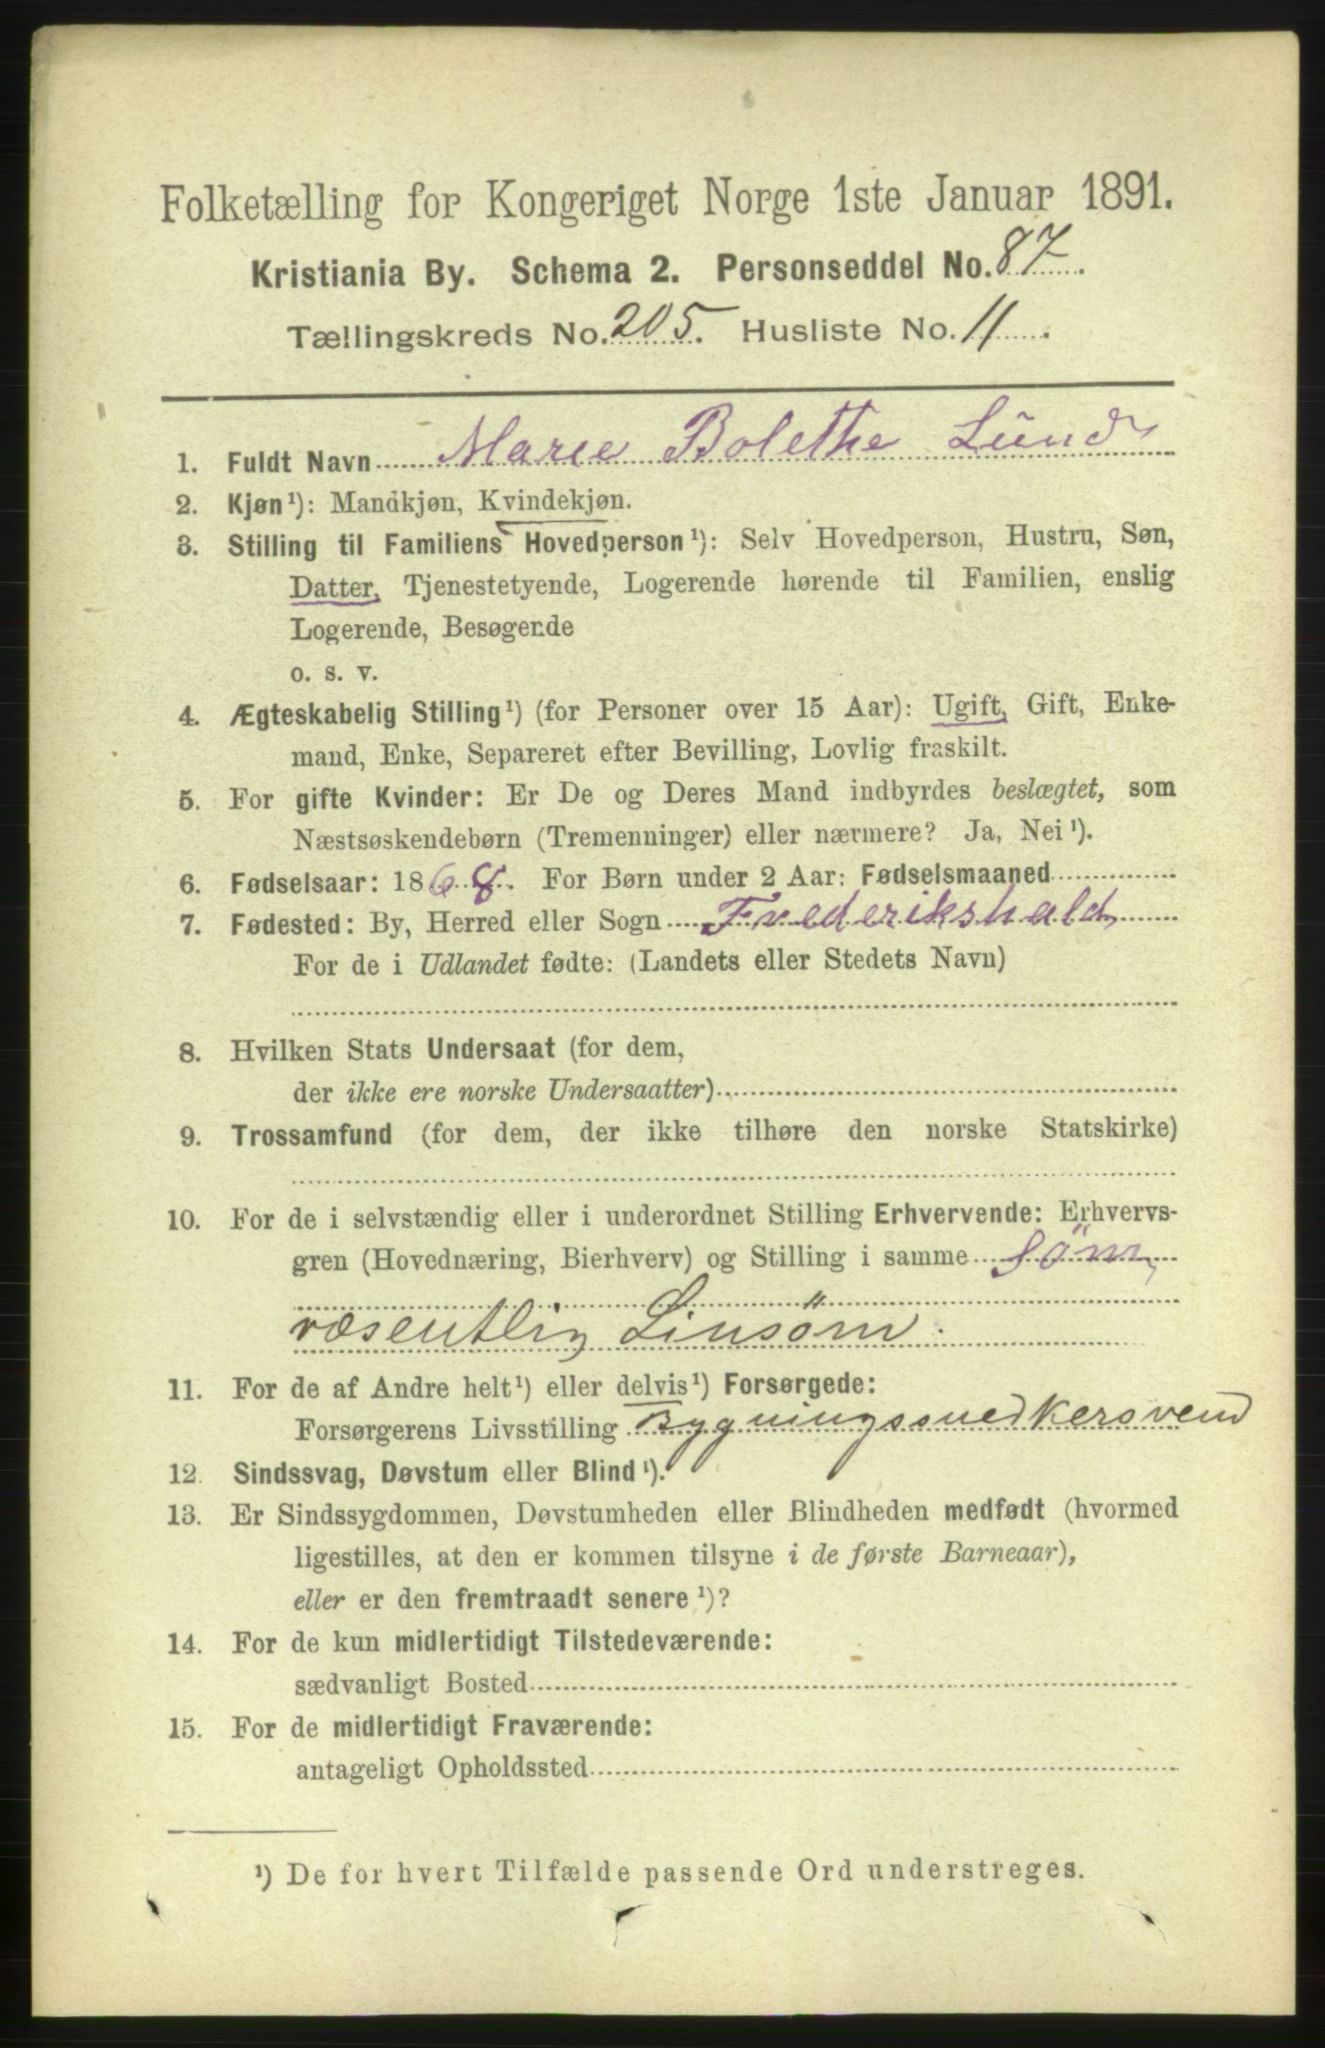 Folketælling for Kongeriget Norge 1ste Januar 1891.
Kristiania By. Schema 2. Personseddel No. 87.
Tællingskreds No. 205. Husliste No. 11.
1. Fuldt Navn Marie Bolethe Lund
2. Kjøn¹): Mandkjøn, Kvindekjøn.
3. Stilling til Familiens Hovedperson¹): Selv Hovedperson, Hustru, Søn,
Datter, Tjenestetyende, Logerende hørende til Familien, enslig
Logerende, Besøgende
o. s. v.
4. Ægteskabelig Stilling¹) (for Personer over 15 Aar): Ugift, Gift, Enke-
mand, Enke, Separeret efter Bevilling, Lovlig fraskilt.
5. For gifte Kvinder: Er De og Deres Mand indbyrdes beslægtet, som
Næstsøskendebørn (Tremenninger) eller nærmere? Ja, Nei¹).
6. Fødselsaar: 1868. For Børn under 2 Aar: Fødselsmaaned
7. Fødested: By, Herred eller Sogn Frederikshald
For de i Udlandet fødte: (Landets eller Stedets Navn)
8. Hvilken Stats Undersaat (for dem,
der ikke ere norske Undersaatter)
9. Trossamfund (for dem, der ikke tilhøre den norske Statskirke)
10. For de i selvstændig eller i underordnet Stilling Erhvervende: Erhvervs-
gren (Hovednæring, Bierhverv) og Stilling i samme Söm,
væsentlig Linsöm.
11. For de af Andre helt¹) eller delvis¹) Forsørgede:
Forsørgerens Livsstilling Bygningssnedkersvend
12. Sindssvag, Døvstum eller Blind¹).
13. Er Sindssygdommen, Døvstumheden eller Blindheden medfødt (hvormed
ligestilles, at den er kommen tilsyne i de første Barneaar),
eller er den fremtraadt senere¹)?
14. For de kun midlertidigt Tilstedeværende:
sædvanligt Bosted
15. For de midlertidigt Fraværende:
antageligt Opholdssted
¹) De for hvert Tilfælde passende Ord understreges.